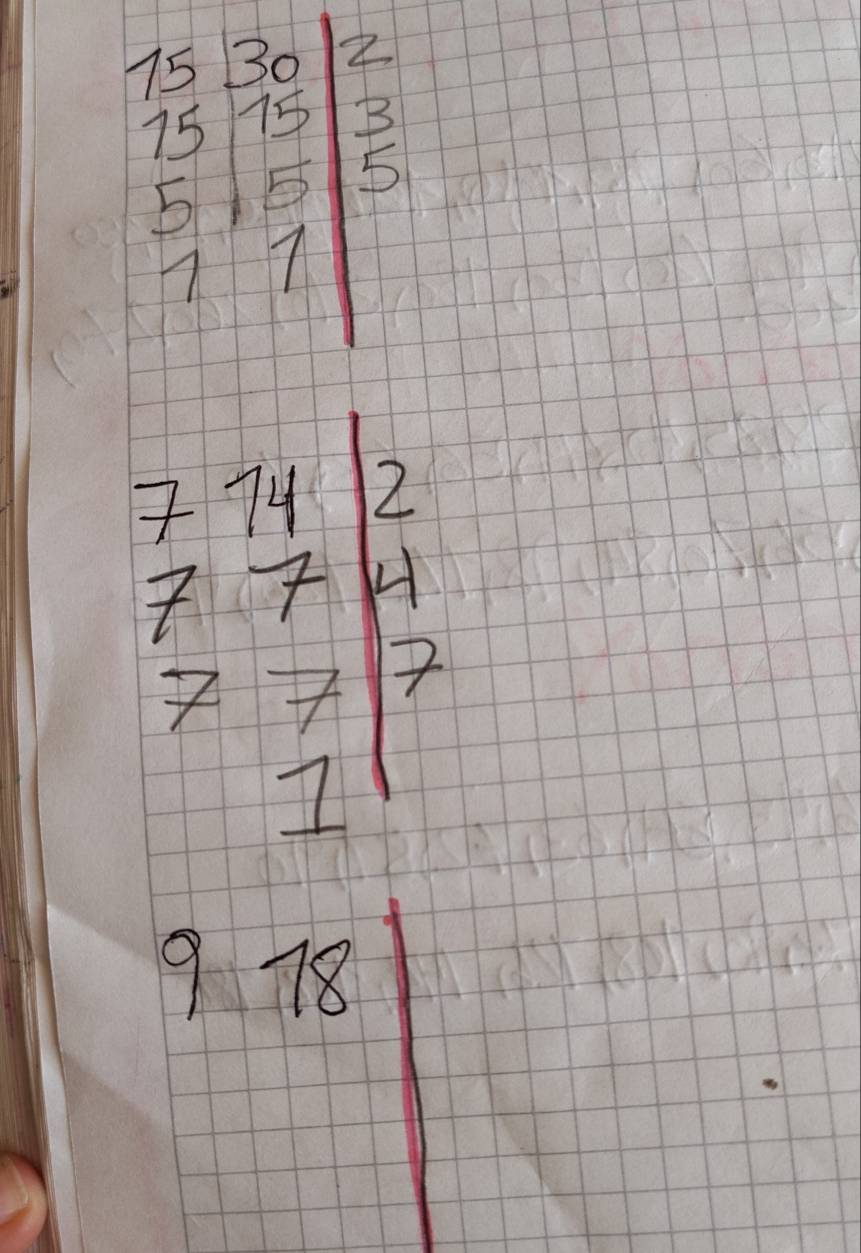 15 30 2
15 15 3
5 5 5
1 1
7 14 2
7 7 4
7 7 7
1
9 18